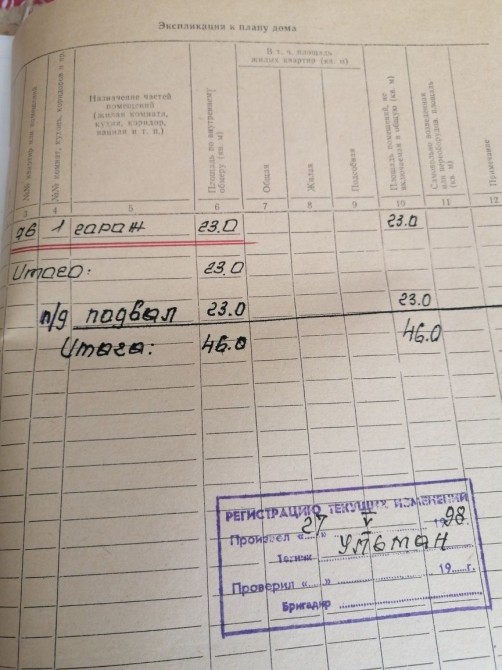 Экспликация к плану дома
№№ квартир или помещений
№№ комнат, кухонь, коридоров и пр.
Назначение частей помещений (жилая комната, кухня, коридор, ванная и т. п.)
Площадь по внутреннему обмеру (кв. м)
В т. ч. площадь жилых квартир (кв. м)
Общая
Жилая
Подсобная
Площадь помещений, не включаемая в общую (кв. м)
Самовольно возведенная или переоборудов. площадь (кв. м)
Примечание
3 4 5 6 7 8 9 10 11 12
76 1 гараж 23.0 23.0
Итого: 23.0
п/д подвал 23.0 23.0
Итога: 46.0 46.0
РЕГИСТРАЦИЮ ТЕКУЩИХ ИЗМЕНЕНИЙ
Произвел «27» V 1998
Техник Ульман
Проверил «.....» 19.....г.
Бригадир